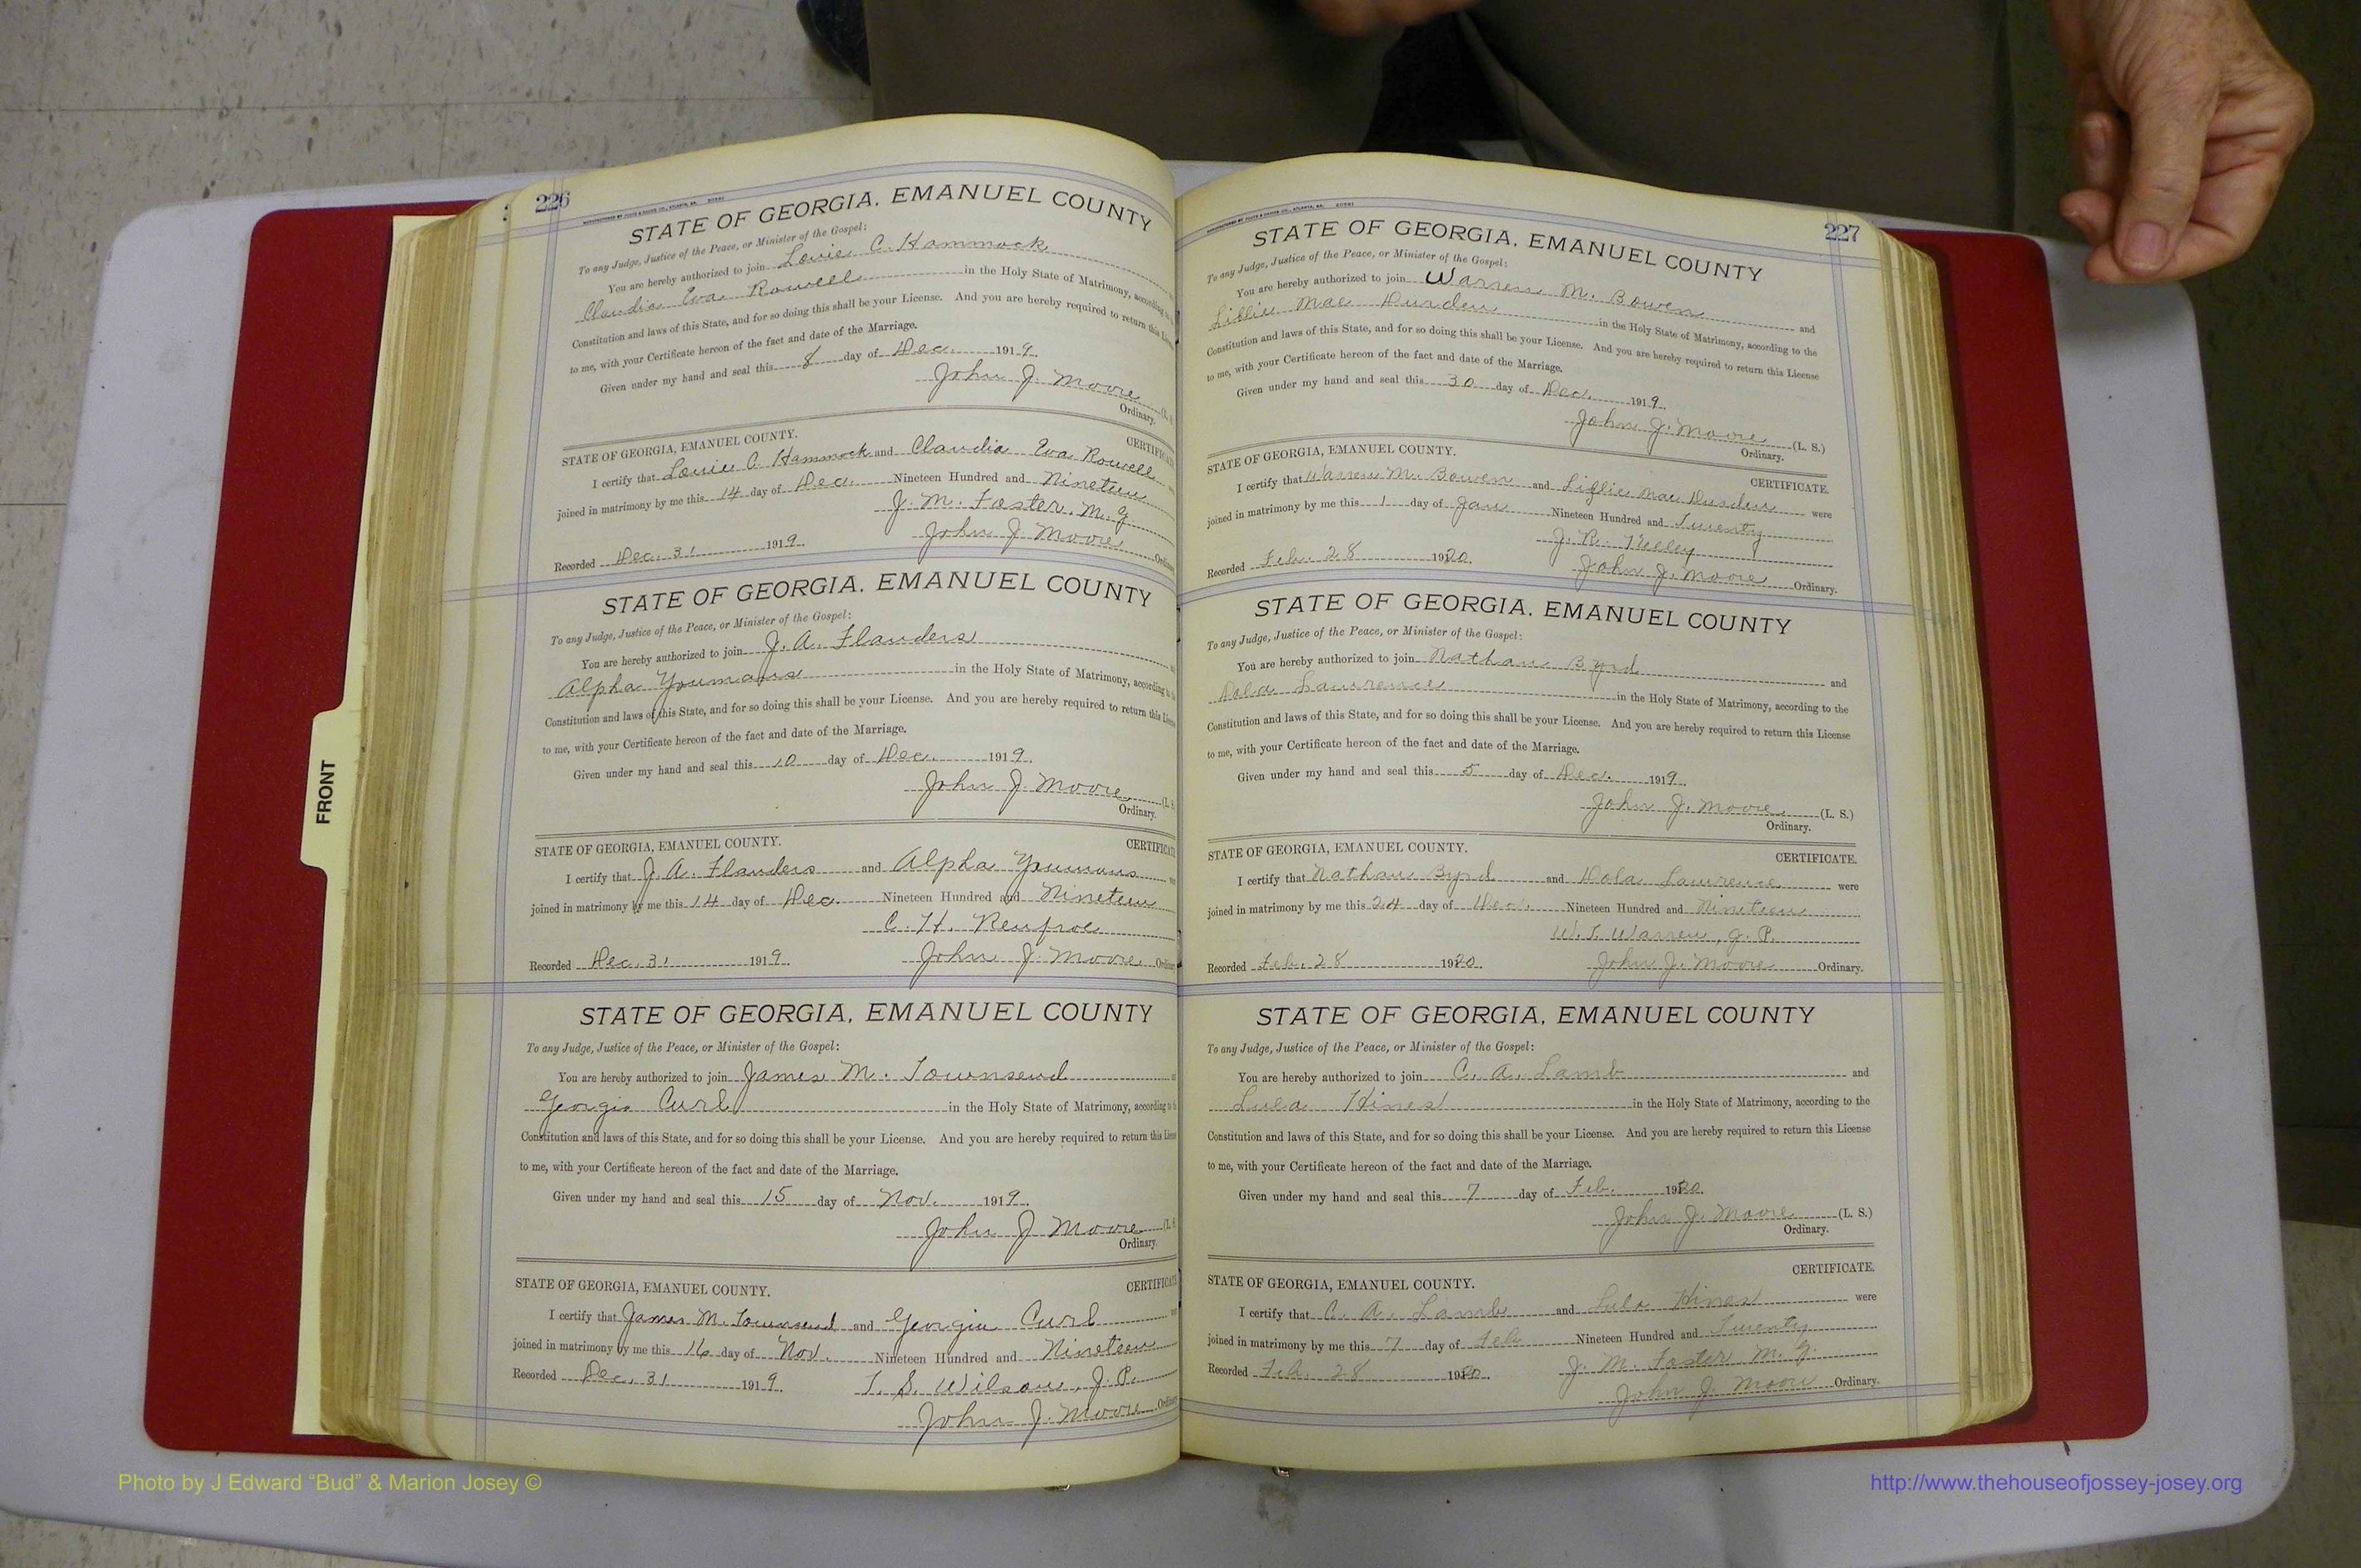 226
STATE OF GEORGIA, EMANUEL COUNTY
To any Judge, Justice of the Peace, or Minister of the Gospel:
You are hereby authorized to join Louie C. Hammock
Claudia Eva Rowell in the Holy State of Matrimony, according to
Constitution and laws of this State, and for so doing this shall be your License. And you are hereby required to return this
to me, with your Certificate hereon of the fact and date of the Marriage.
Given under my hand and seal this 8 day of Dec. 1919.
John J. Moore (L. S.
Ordinary.
STATE OF GEORGIA, EMANUEL COUNTY. CERTIFICATE
I certify that Louie C. Hammock and Claudia Eva Rowell
joined in matrimony by me this 14 day of Dec. Nineteen Hundred and Nineteen
J. M. Foster, M. G
Recorded Dec. 31 1919. John J Moore Ordinary
STATE OF GEORGIA, EMANUEL COUNTY
To any Judge, Justice of the Peace, or Minister of the Gospel:
You are hereby authorized to join J. A. Flanders
Alpha Youmans in the Holy State of Matrimony, according to
Constitution and laws of this State, and for so doing this shall be your License. And you are hereby required to return this License
to me, with your Certificate hereon of the fact and date of the Marriage.
Given under my hand and seal this 10 day of Dec. 1919.
John J. Moore (L. S
Ordinary.
STATE OF GEORGIA, EMANUEL COUNTY. CERTIFICATE
I certify that J. A. Flanders and Alpha Youmans
joined in matrimony by me this 14 day of Dec. Nineteen Hundred and Nineteen
C. H. Renfroe
Recorded Dec. 31 1919. John J. Moore Ordinary
STATE OF GEORGIA, EMANUEL COUNTY
To any Judge, Justice of the Peace, or Minister of the Gospel:
You are hereby authorized to join James M. Townsend
Georgia Curl in the Holy State of Matrimony, according to
Constitution and laws of this State, and for so doing this shall be your License. And you are hereby required to return this License
to me, with your Certificate hereon of the fact and date of the Marriage.
Given under my hand and seal this 15 day of Nov. 1919.
John J Moore (L. S
Ordinary.
STATE OF GEORGIA, EMANUEL COUNTY. CERTIFICATE
I certify that James M. Townsend and Georgia Curl
joined in matrimony by me this 16 day of Nov. Nineteen Hundred and Nineteen
Recorded Dec. 31 1919. T. S. Wilson, J. P.
John J. Moore Ordinary
227
STATE OF GEORGIA, EMANUEL COUNTY
To any Judge, Justice of the Peace, or Minister of the Gospel:
You are hereby authorized to join Warren M. Bowen and
Lillie Mae Durden in the Holy State of Matrimony, according to the
Constitution and laws of this State, and for so doing this shall be your License. And you are hereby required to return this License
to me, with your Certificate hereon of the fact and date of the Marriage.
Given under my hand and seal this 30 day of Dec. 1919.
John J. Moore (L. S.)
Ordinary.
STATE OF GEORGIA, EMANUEL COUNTY. CERTIFICATE.
I certify that Warren M. Bowen and Lillie Mae Durden were
joined in matrimony by me this 1 day of Jan Nineteen Hundred and Twenty
J. R. Kelley
Recorded Feb. 28 1920. John J. Moore Ordinary.
STATE OF GEORGIA, EMANUEL COUNTY
To any Judge, Justice of the Peace, or Minister of the Gospel:
You are hereby authorized to join Nathan Byrd and
Dola Lawrence in the Holy State of Matrimony, according to the
Constitution and laws of this State, and for so doing this shall be your License. And you are hereby required to return this License
to me, with your Certificate hereon of the fact and date of the Marriage.
Given under my hand and seal this 5 day of Dec. 1919.
John J. Moore (L. S.)
Ordinary.
STATE OF GEORGIA, EMANUEL COUNTY. CERTIFICATE.
I certify that Nathan Byrd and Dola Lawrence were
joined in matrimony by me this 24 day of Dec. Nineteen Hundred and Nineteen
Warren, J. P.
Recorded Feb. 28 1920. John J. Moore Ordinary.
STATE OF GEORGIA, EMANUEL COUNTY
To any Judge, Justice of the Peace, or Minister of the Gospel:
You are hereby authorized to join C. A. Lamb and
Lula Hines in the Holy State of Matrimony, according to the
Constitution and laws of this State, and for so doing this shall be your License. And you are hereby required to return this License
to me, with your Certificate hereon of the fact and date of the Marriage.
Given under my hand and seal this 7 day of Feb. 1920.
John J. Moore (L. S.)
Ordinary.
STATE OF GEORGIA, EMANUEL COUNTY. CERTIFICATE.
I certify that C. A. Lamb and Lula Hines were
joined in matrimony by me this 7 day of Feb Nineteen Hundred and Twenty
Recorded Feb. 28 1920. J. M. Foster M. G.
John J. Moore Ordinary.
FRONT
Photo by J Edward “Bud” & Marion Josey ©
http://www.thehouseofjossey-josey.org